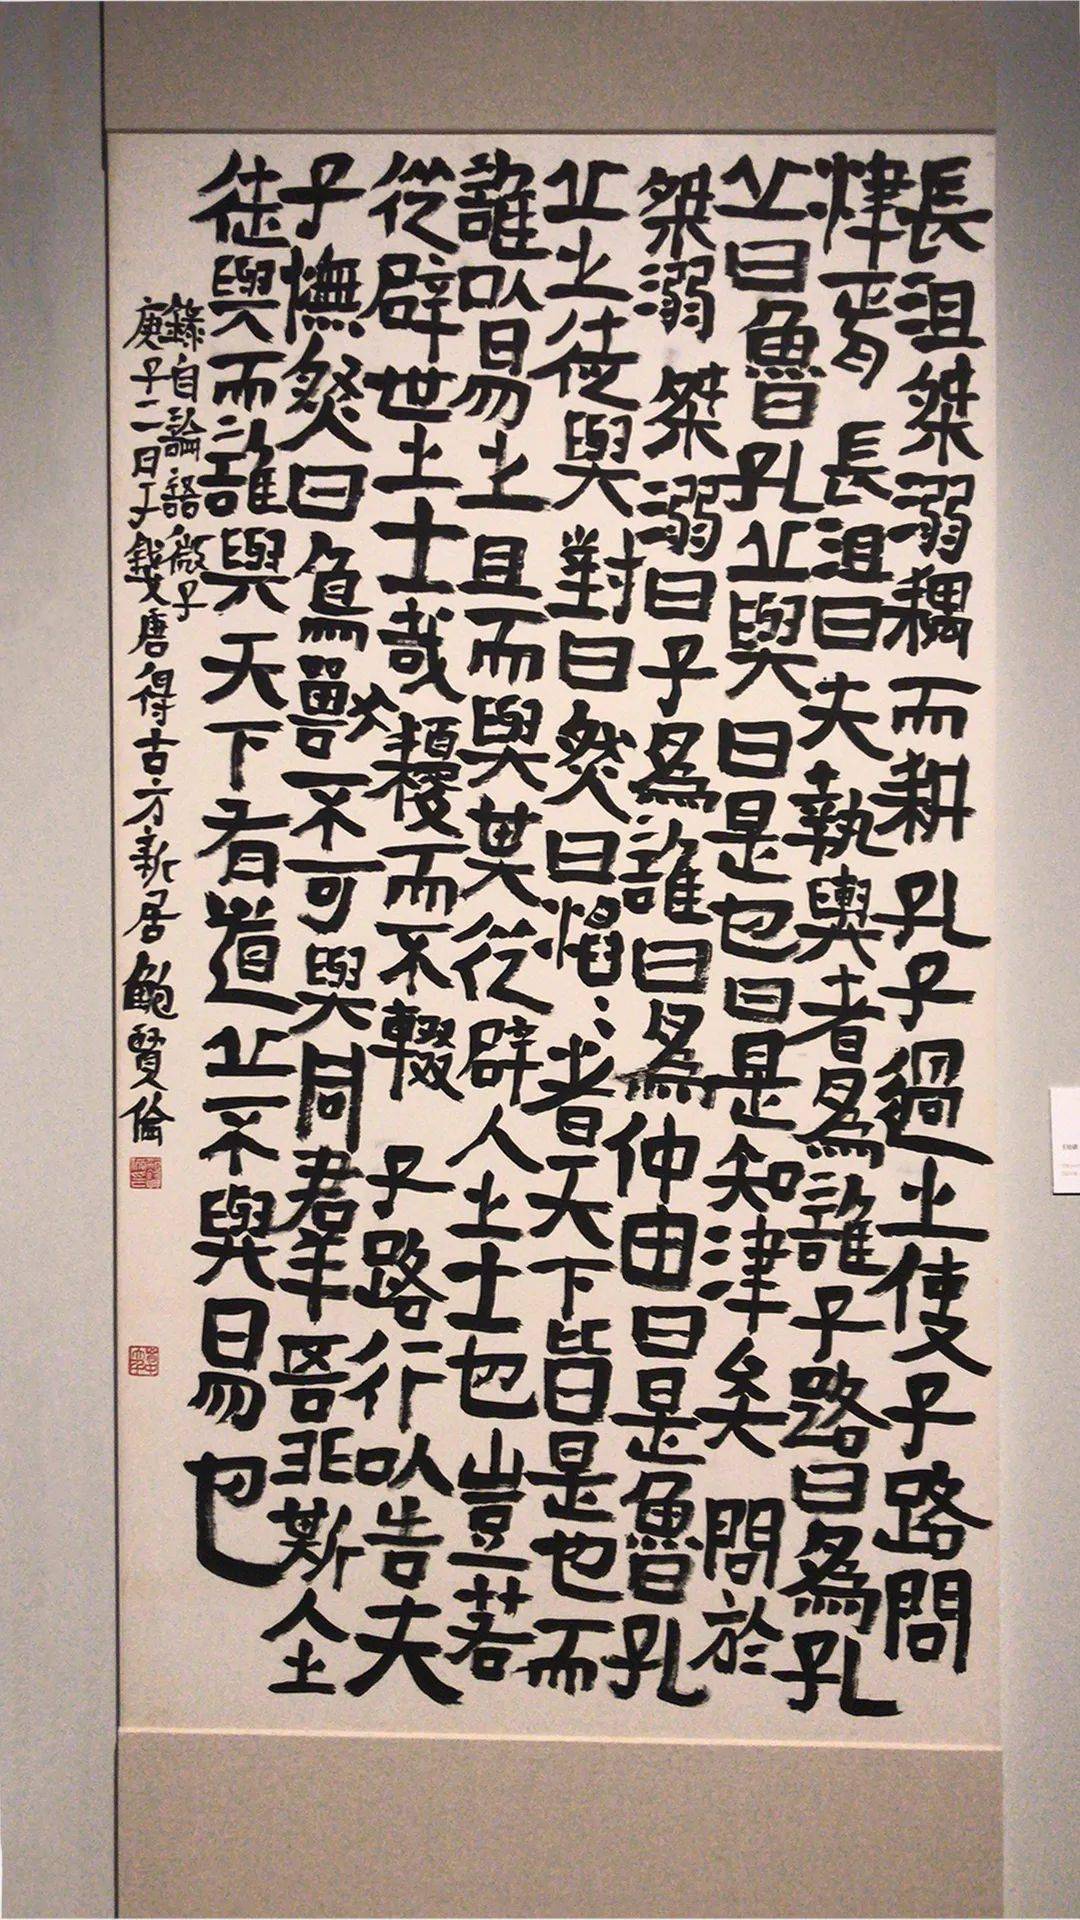 長沮桀溺耦而耕孔子過之使子路問
津焉長沮曰夫執輿者為誰子路曰為孔
丘曰魯孔丘與曰是也曰是知津矣問於
桀溺桀溺曰子為誰曰為仲由曰是魯孔
丘之徒與對曰然曰慆〻者天下皆是也而
誰以易之且而與其從辟人之士也豈若
從辟世之士哉耰而不輟子路行以告夫
子憮然曰鳥獸不可與同羣吾非斯人之
徒與而誰與天下有道丘不與易也
錄自論語微子
庚子二日于錢唐得古方新居鮑賢倫